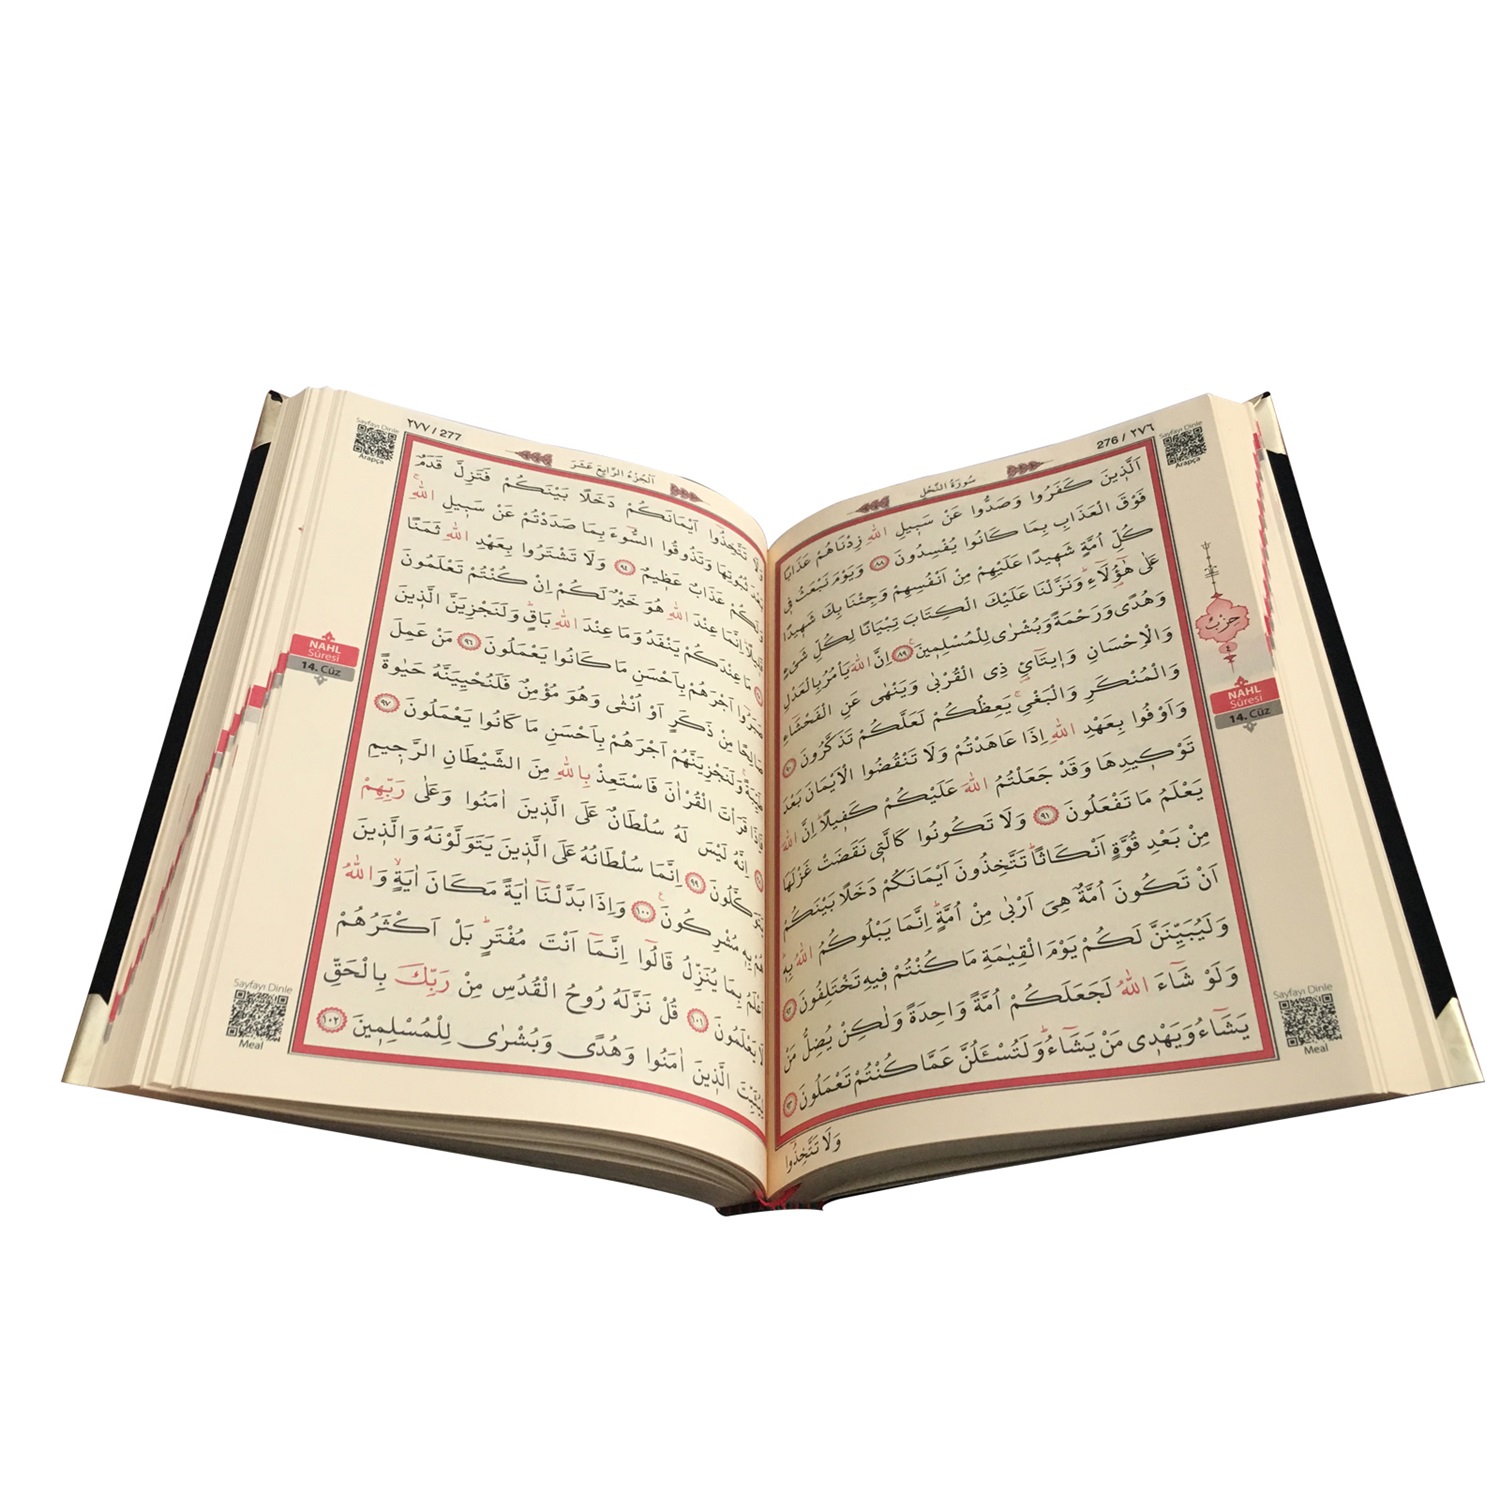 276 / ٢٧٦
Sayfayı Dinle
Arapça
سُورَةُ النَّحْلِ
اَلَّذ۪ينَ كَفَرُوا وَصَدُّوا عَنْ سَب۪يلِ اللّٰهِ زِدْنَاهُمْ عَذَابًا
فَوْقَ الْعَذَابِ بِمَا كَانُوا يُفْسِدُونَ ٨٨ وَيَوْمَ نَبْعَثُ ف۪ي
كُلِّ اُمَّةٍ شَه۪يدًا عَلَيْهِمْ مِنْ اَنْفُسِهِمْ وَجِئْنَا بِكَ شَه۪يدًا
عَلٰى هٰٓؤُ۬لَٓاءِۜ وَنَزَّلْنَا عَلَيْكَ الْكِتَابَ تِبْيَانًا لِكُلِّ شَيْءٍ
وَهُدًى وَرَحْمَةً وَبُشْرٰى لِلْمُسْلِم۪ينَ۟ ٨٩ اِنَّ اللّٰهَ يَأْمُرُ بِالْعَدْلِ
وَالْاِحْسَانِ وَا۪يتَٓائِ ذِي الْقُرْبٰى وَيَنْهٰى عَنِ الْفَحْشَٓاءِ
وَالْمُنْكَرِ وَالْبَغْيِۚ يَعِظُكُمْ لَعَلَّكُمْ تَذَكَّرُونَ ٩٠
وَاَوْفُوا بِعَهْدِ اللّٰهِ اِذَا عَاهَدْتُمْ وَلَا تَنْقُضُوا الْاَيْمَانَ بَعْدَ
تَوْك۪يدِهَا وَقَدْ جَعَلْتُمُ اللّٰهَ عَلَيْكُمْ كَف۪يلًاۜ اِنَّ اللّٰهَ
يَعْلَمُ مَا تَفْعَلُونَ ٩١ وَلَا تَكُونُوا كَالَّت۪ي نَقَضَتْ غَزْلَهَا
مِنْ بَعْدِ قُوَّةٍ اَنْكَاثًاۜ تَتَّخِذُونَ اَيْمَانَكُمْ دَخَلًا بَيْنَكُمْ
اَنْ تَكُونَ اُمَّةٌ هِيَ اَرْبٰى مِنْ اُمَّةٍۜ اِنَّمَا يَبْلُوكُمُ اللّٰهُ بِه۪ۜ
وَلَيُبَيِّنَنَّ لَكُمْ يَوْمَ الْقِيٰمَةِ مَا كُنْتُمْ ف۪يهِ تَخْتَلِفُونَ ٩٢
وَلَوْ شَٓاءَ اللّٰهُ لَجَعَلَكُمْ اُمَّةً وَاحِدَةً وَلٰكِنْ يُضِلُّ مَنْ
يَشَٓاءُ وَيَهْد۪ي مَنْ يَشَٓاءُۜ وَلَتُسْـَٔلُنَّ عَمَّا كُنْتُمْ تَعْمَلُونَ ٩٣
وَلَا تَتَّخِذُٓوا
حِزْبْ
٤
NAHL
Sûresi
14. Cüz
Sayfayı Dinle
Meal
٢٧٧ / 277
Sayfayı Dinle
Arapça
اَلْجُزْءُ الرَّابِعَ عَشَرَ
وَلَا تَتَّخِذُٓوا اَيْمَانَكُمْ دَخَلًا بَيْنَكُمْ فَتَزِلَّ قَدَمٌ
بَعْدَ ثُبُوتِهَا وَتَذُوقُوا السُّٓوءَ بِمَا صَدَدْتُمْ عَنْ سَب۪يلِ اللّٰهِۚ
وَلَكُمْ عَذَابٌ عَظ۪يمٌ ٩٤ وَلَا تَشْتَرُوا بِعَهْدِ اللّٰهِ ثَمَنًا
قَل۪يلًاۜ اِنَّمَا عِنْدَ اللّٰهِ هُوَ خَيْرٌ لَكُمْ اِنْ كُنْتُمْ تَعْلَمُونَ
مَا عِنْدَكُمْ يَنْفَدُ وَمَا عِنْدَ اللّٰهِ بَاقٍۜ وَلَنَجْزِيَنَّ الَّذ۪ينَ
صَبَرُٓوا اَجْرَهُمْ بِاَحْسَنِ مَا كَانُوا يَعْمَلُونَ ٩٦ مَنْ عَمِلَ
صَالِحًا مِنْ ذَكَرٍ اَوْ اُنْثٰى وَهُوَ مُؤْمِنٌ فَلَنُحْيِيَنَّهُ حَيٰوةً
طَيِّبَةًۚ وَلَنَجْزِيَنَّهُمْ اَجْرَهُمْ بِاَحْسَنِ مَا كَانُوا يَعْمَلُونَ ٩٧
فَاِذَا قَرَأْتَ الْقُرْاٰنَ فَاسْتَعِذْ بِاللّٰهِ مِنَ الشَّيْطَانِ الرَّج۪يمِ
اِنَّهُ لَيْسَ لَهُ سُلْطَانٌ عَلَى الَّذ۪ينَ اٰمَنُوا وَعَلٰى رَبِّهِمْ
يَتَوَكَّلُونَ ٩٩ اِنَّمَا سُلْطَانُهُ عَلَى الَّذ۪ينَ يَتَوَلَّوْنَهُ وَالَّذ۪ينَ
هُمْ بِه۪ مُشْرِكُونَ۟ ١٠٠ وَاِذَا بَدَّلْنَٓا اٰيَةً مَكَانَ اٰيَةٍۙ وَاللّٰهُ
اَعْلَمُ بِمَا يُنَزِّلُ قَالُٓوا اِنَّمَٓا اَنْتَ مُفْتَرٍۜ بَلْ اَكْثَرُهُمْ
لَا يَعْلَمُونَ ١٠١ قُلْ نَزَّلَهُ رُوحُ الْقُدُسِ مِنْ رَبِّكَ بِالْحَقِّ
لِيُثَبِّتَ الَّذ۪ينَ اٰمَنُوا وَهُدًى وَبُشْرٰى لِلْمُسْلِم۪ينَ ١٠٢
NAHL
Sûresi
14. Cüz
Sayfayı Dinle
Meal